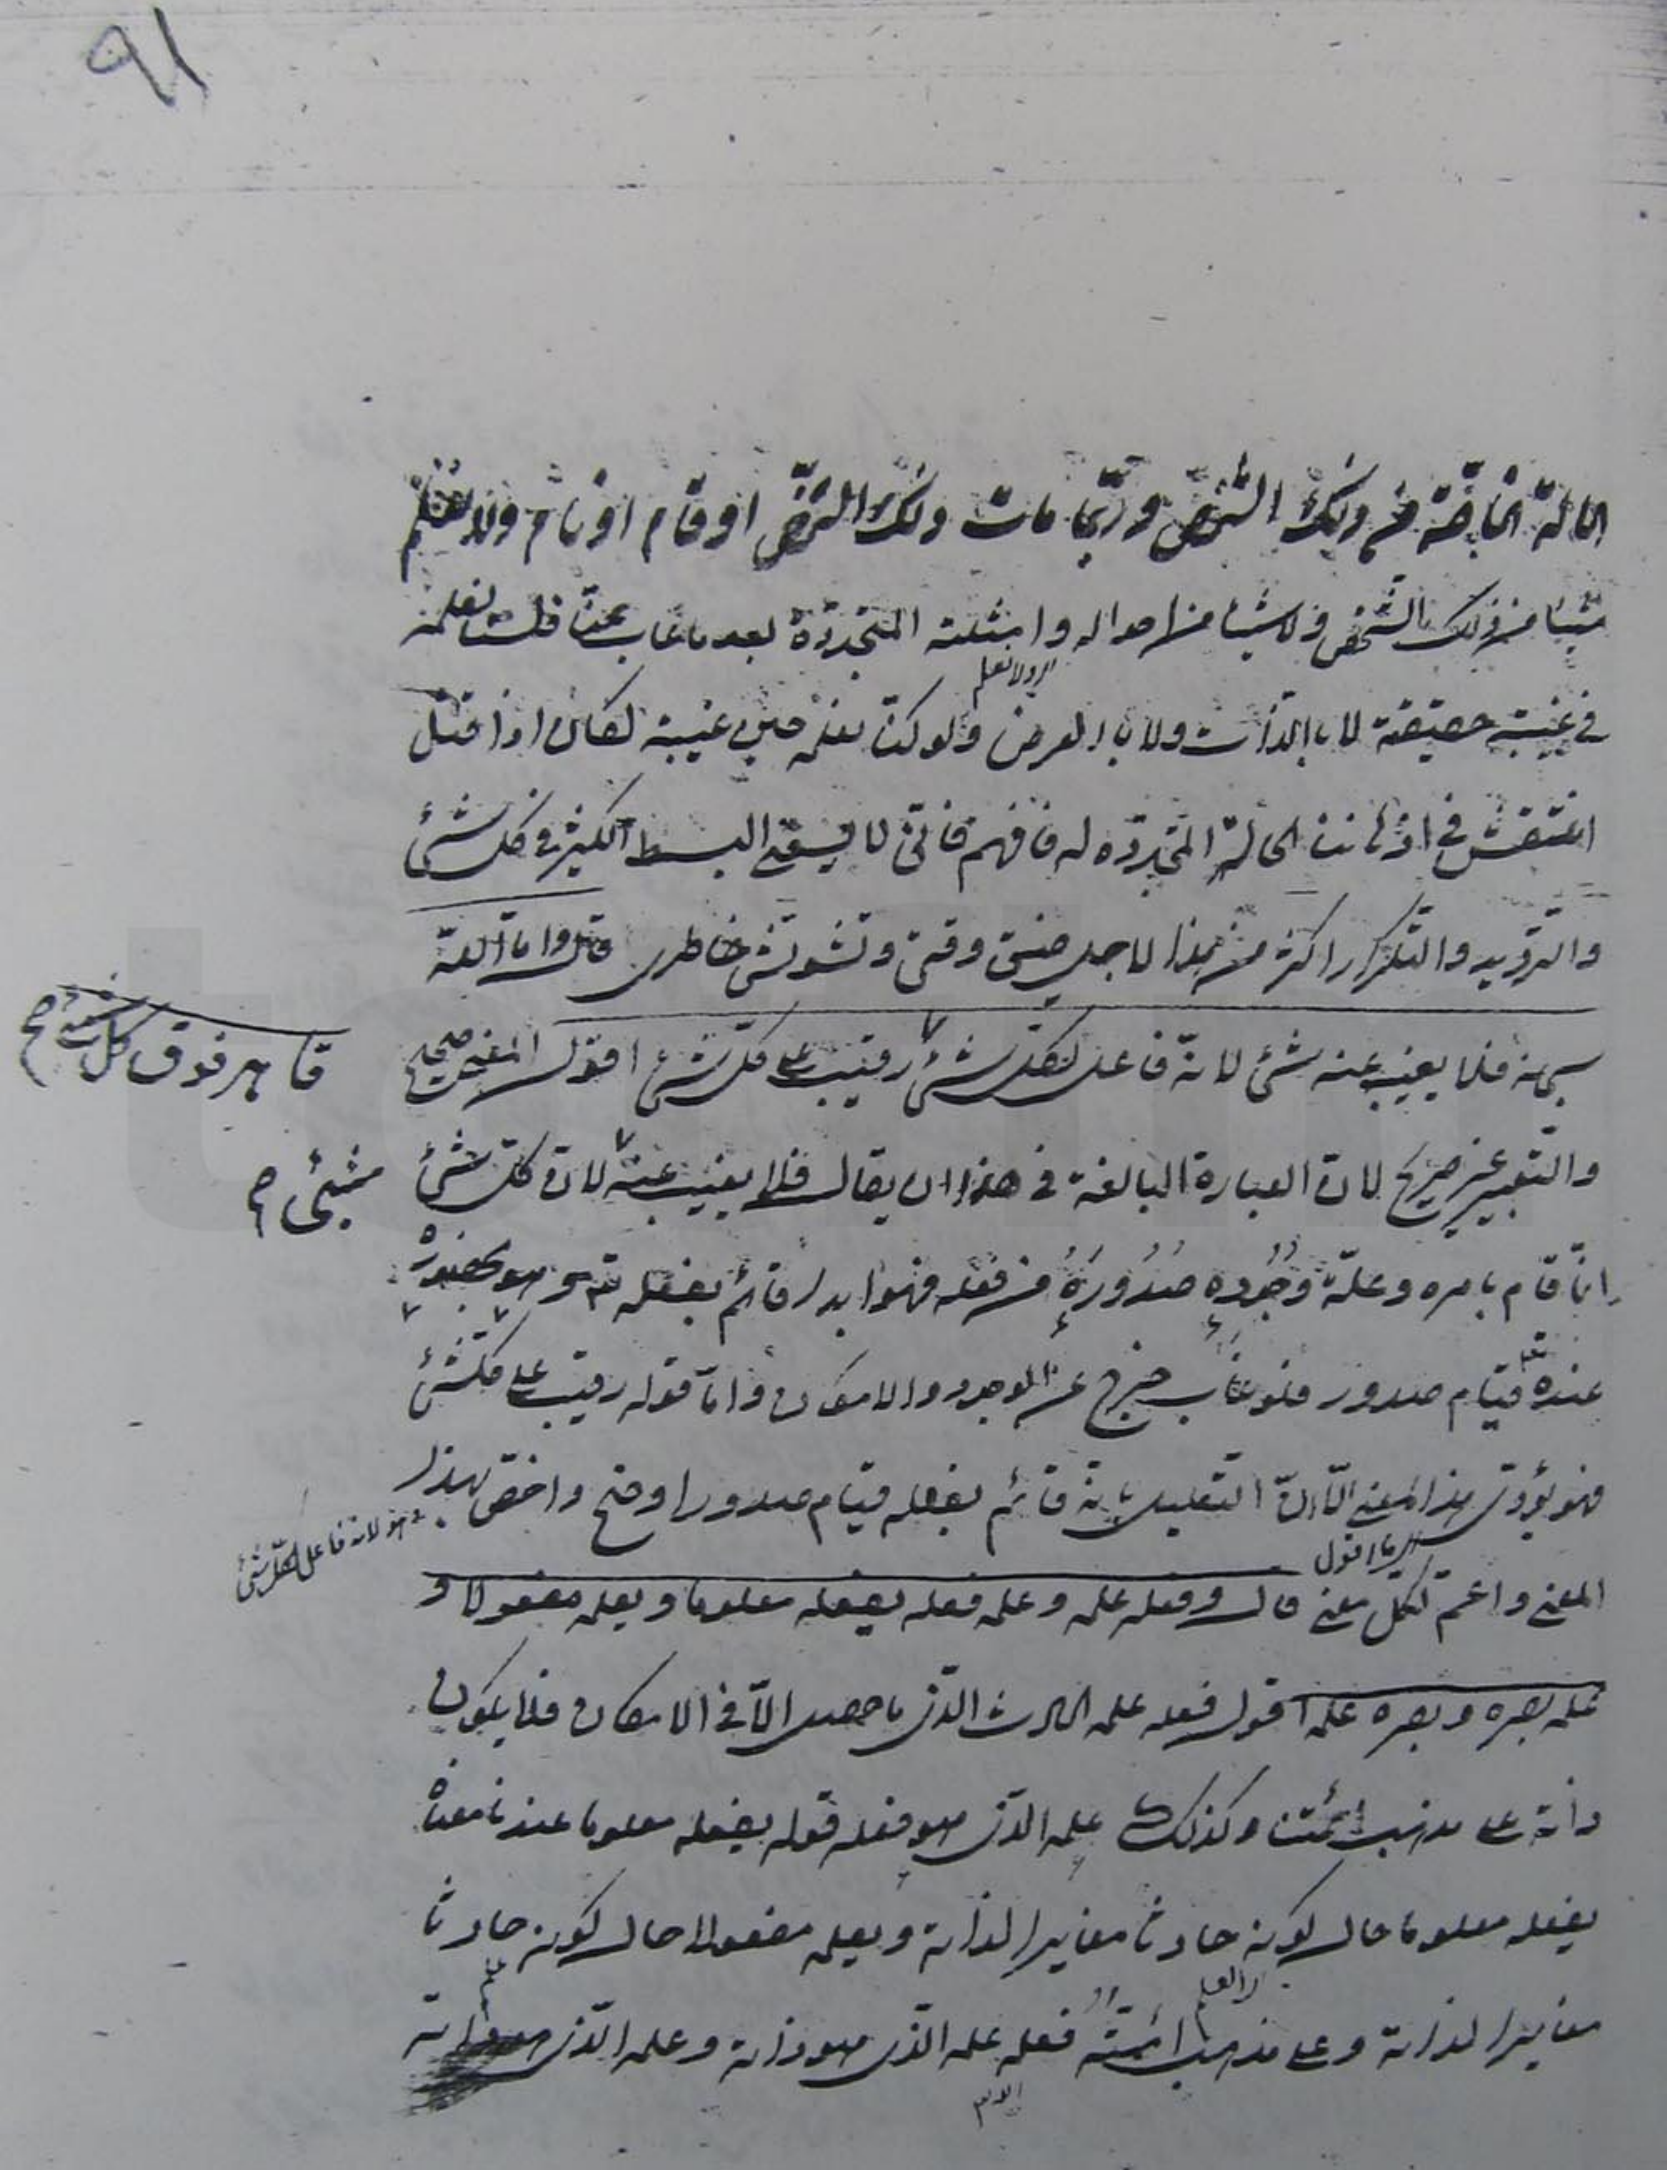 ٩١
الحالة الخاصّة من ذلك الشخص وربّما مات ذلك الشخص او قام او نام ولا تعلم
شيئا من ذلك الشخص ولا شيئا من احواله وامثلته المتجددة بعد ما غاب عنك فلست تعلمه
اى ولا تعلم
في غيبته حقيقة لا بالذات ولا بالعرض ولو كنت تعلمه حين غيبته لكان اذا قتل
انتقش في اذهاننا الحالة المتجددة له فافهم فانّى لا يسعنى البسط الكثير في كل شئ
والترديد والتكرار اكثر من هذا لاجل ضيق وقتى وتشويش خاطرى قال واما الله
سبحانه فلا يغيب عنه شئ لانّه فاعل لكل شئ رقيب على كل شئ اقول المعنى صحيح
قاهر فوق كل شئ صح
والتعبير غير صريح لانّ العبارة البالغة في هذا ان يقال فلا يغيب عنه لانّ كل شئ
شئ صح
انّما قام بامره وعلّة وجوده صدوره من فعله فهو ابدا قائم بفعله وهو بحضوره
عنده قيام صدور فلو غاب خرج عن الوجود والاكوان وامّا قوله رقيب على كل شئ
فهو يؤدّى هذا المعنى الّا انّ التعليل بانّه قائم بفعله قيام صدور اوضح واخصّ بهذا
وهو لانه فاعل لكل شئ
المعنى واعمّ لكلّ معنى قال وفعله علمه وعلمه فعله يفعله معلوما ويعلمه مفعولا و
علمه بصره وبصره علمه اقول فعله علمه الحادث الذى ما حصل الّا في الامكان فلا يكون
ذاته على مذهب ائمّتنا وكذلك علمه الذى هو فعله قوله يفعله معلوما عندنا معناه
يفعله معلوما حال كونه حادثا مغايرا لذاته ويعلمه مفعولا حال كونه حادثا
مغايرا لذاته وعلى مذهب ائمّته فعله علمه الذى هو ذاته وعلمه الذى هو ذاته